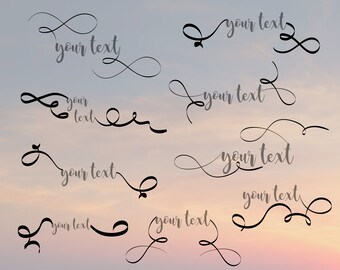 your text
your text
your
text
your text
your text
your text
your text
your text
your text